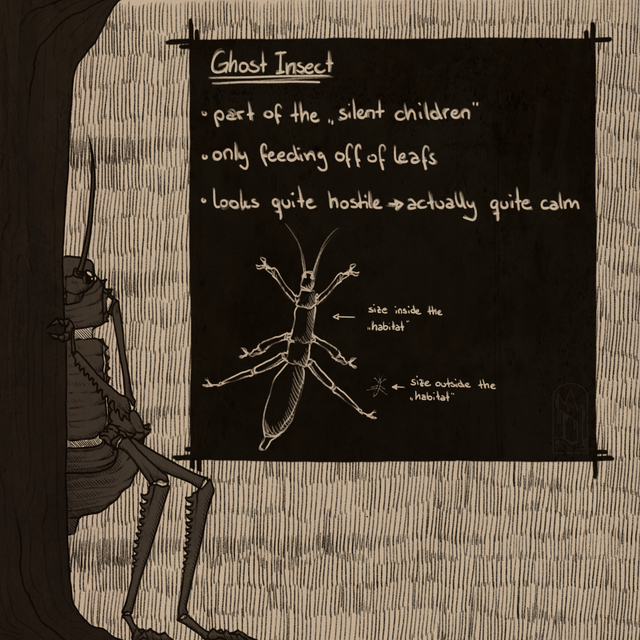 Ghost Insect
• part of the „silent children"
• only feeding off of leafs
• looks quite hostile → actually quite calm
← size inside the
„habitat"
← size outside the
„habitat"